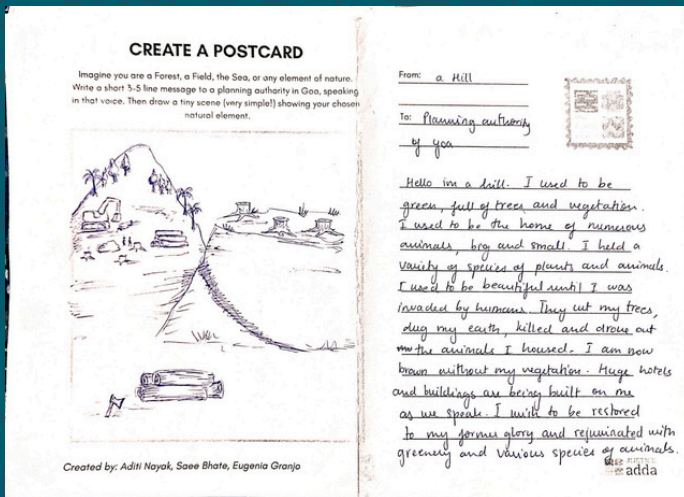 CREATE A POSTCARD
Imagine you are a Forest, a Field, the Sea, or any element of nature.
Write a short 3-5 line message to a planning authority in Goa, speaking
in that voice. Then draw a tiny scene (very simple!) showing your chosen
natural element.
Created by: Aditi Nayak, Saee Bhate, Eugenia Granjo
From: a Hill
To: Planning authority
of goa
Hello im a hill. I used to be
green, full of trees and vegetation.
I used to be the home of numerous
animals, big and small. I held a
variety of species of plants and animals.
I used to be beautiful until I was
invaded by humans. They cut my trees,
dug my earth, killed and drove out
the animals I housed. I am now
brown without my vegetation. Huge hotels
and buildings are being built on me
as we speak. I wish to be restored
to my former glory and rejuvinated with
greenery and various species of animals.
adda